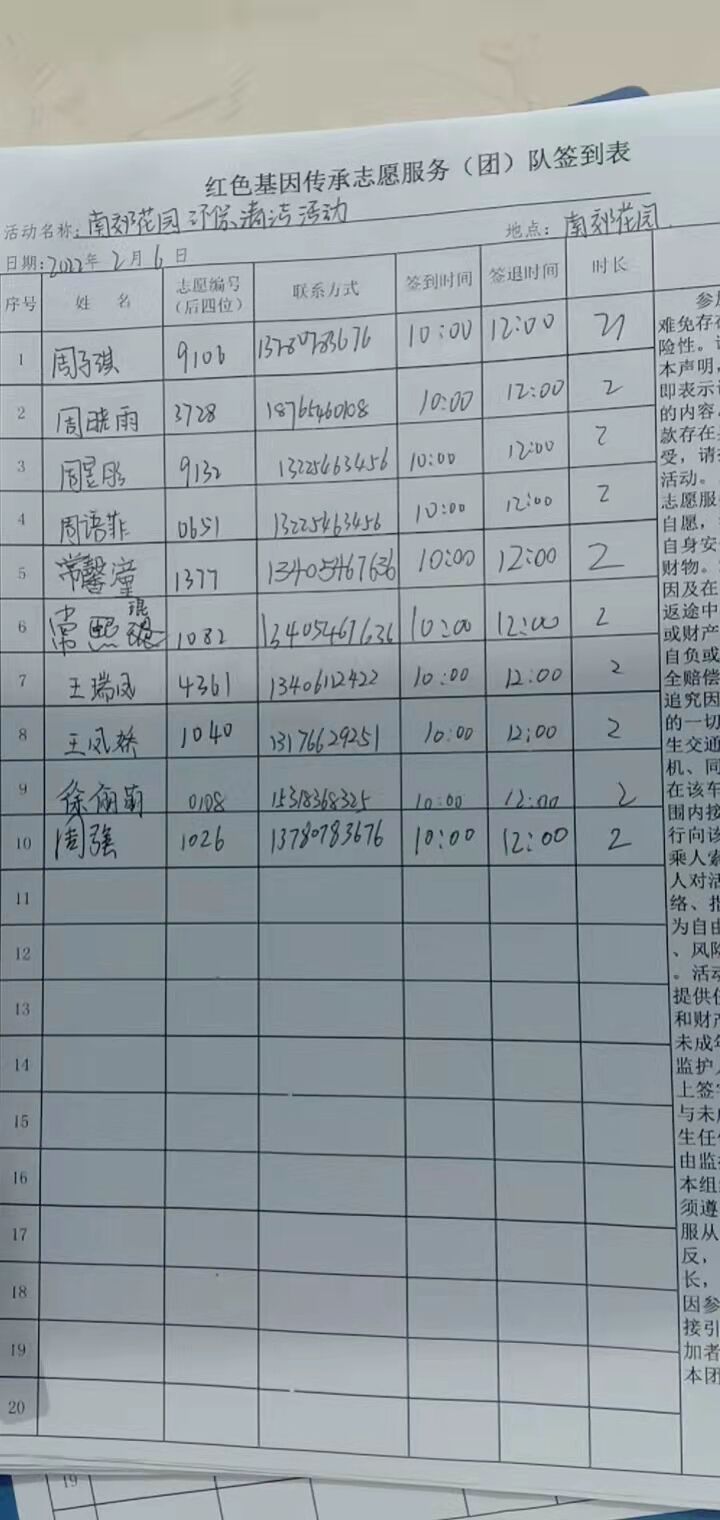 红色基因传承志愿服务（团）队签到表
活动名称：南郊花园环保清洁活动 地点：南郊花园
日期：2022年2月6日
序号 姓名 志愿编号（后四位） 联系方式 签到时间 签退时间 时长
1 周子琪 9106 13780783676 10:00 12:00
2 周晓雨 3728 18765460108 10:00 12:00 2
3 周昱彤 9132 13225463456 10:00 12:00 2
4 周语菲 0651 13225463456 10:00 12:00 2
5 常馨童 1377 13405467636 10:00 12:00 2
6 常熙琨 1082 13405467636 10:00 12:00 2
7 王瑞凤 4361 13406112422 10:00 12:00 2
8 王凤娇 1040 13176629251 10:00 12:00 2
9 徐俪菊 0108 15318368325 10:00 12:00 2
10 周强 1026 13780783676 10:00 12:00 2
11
12
13
14
15
16
17
18
19
20
难免存在
险性。
本声明，
即表示
的内容
款存在
受，请
活动。
志愿服
自愿，
自身安
财物。
因及在
返途中
或财产
自负或
全赔偿
追究因
的一切
生交通
机、同
在该车
围内按
行向该
乘人索
人对活
络、指
为自由
、风险
。活动
提供任
和财产
未成年
监护人
上签字
与未成
生任何
由监护
本组织
须遵
服从
反，
长，
因参
接引
加者
本团
19